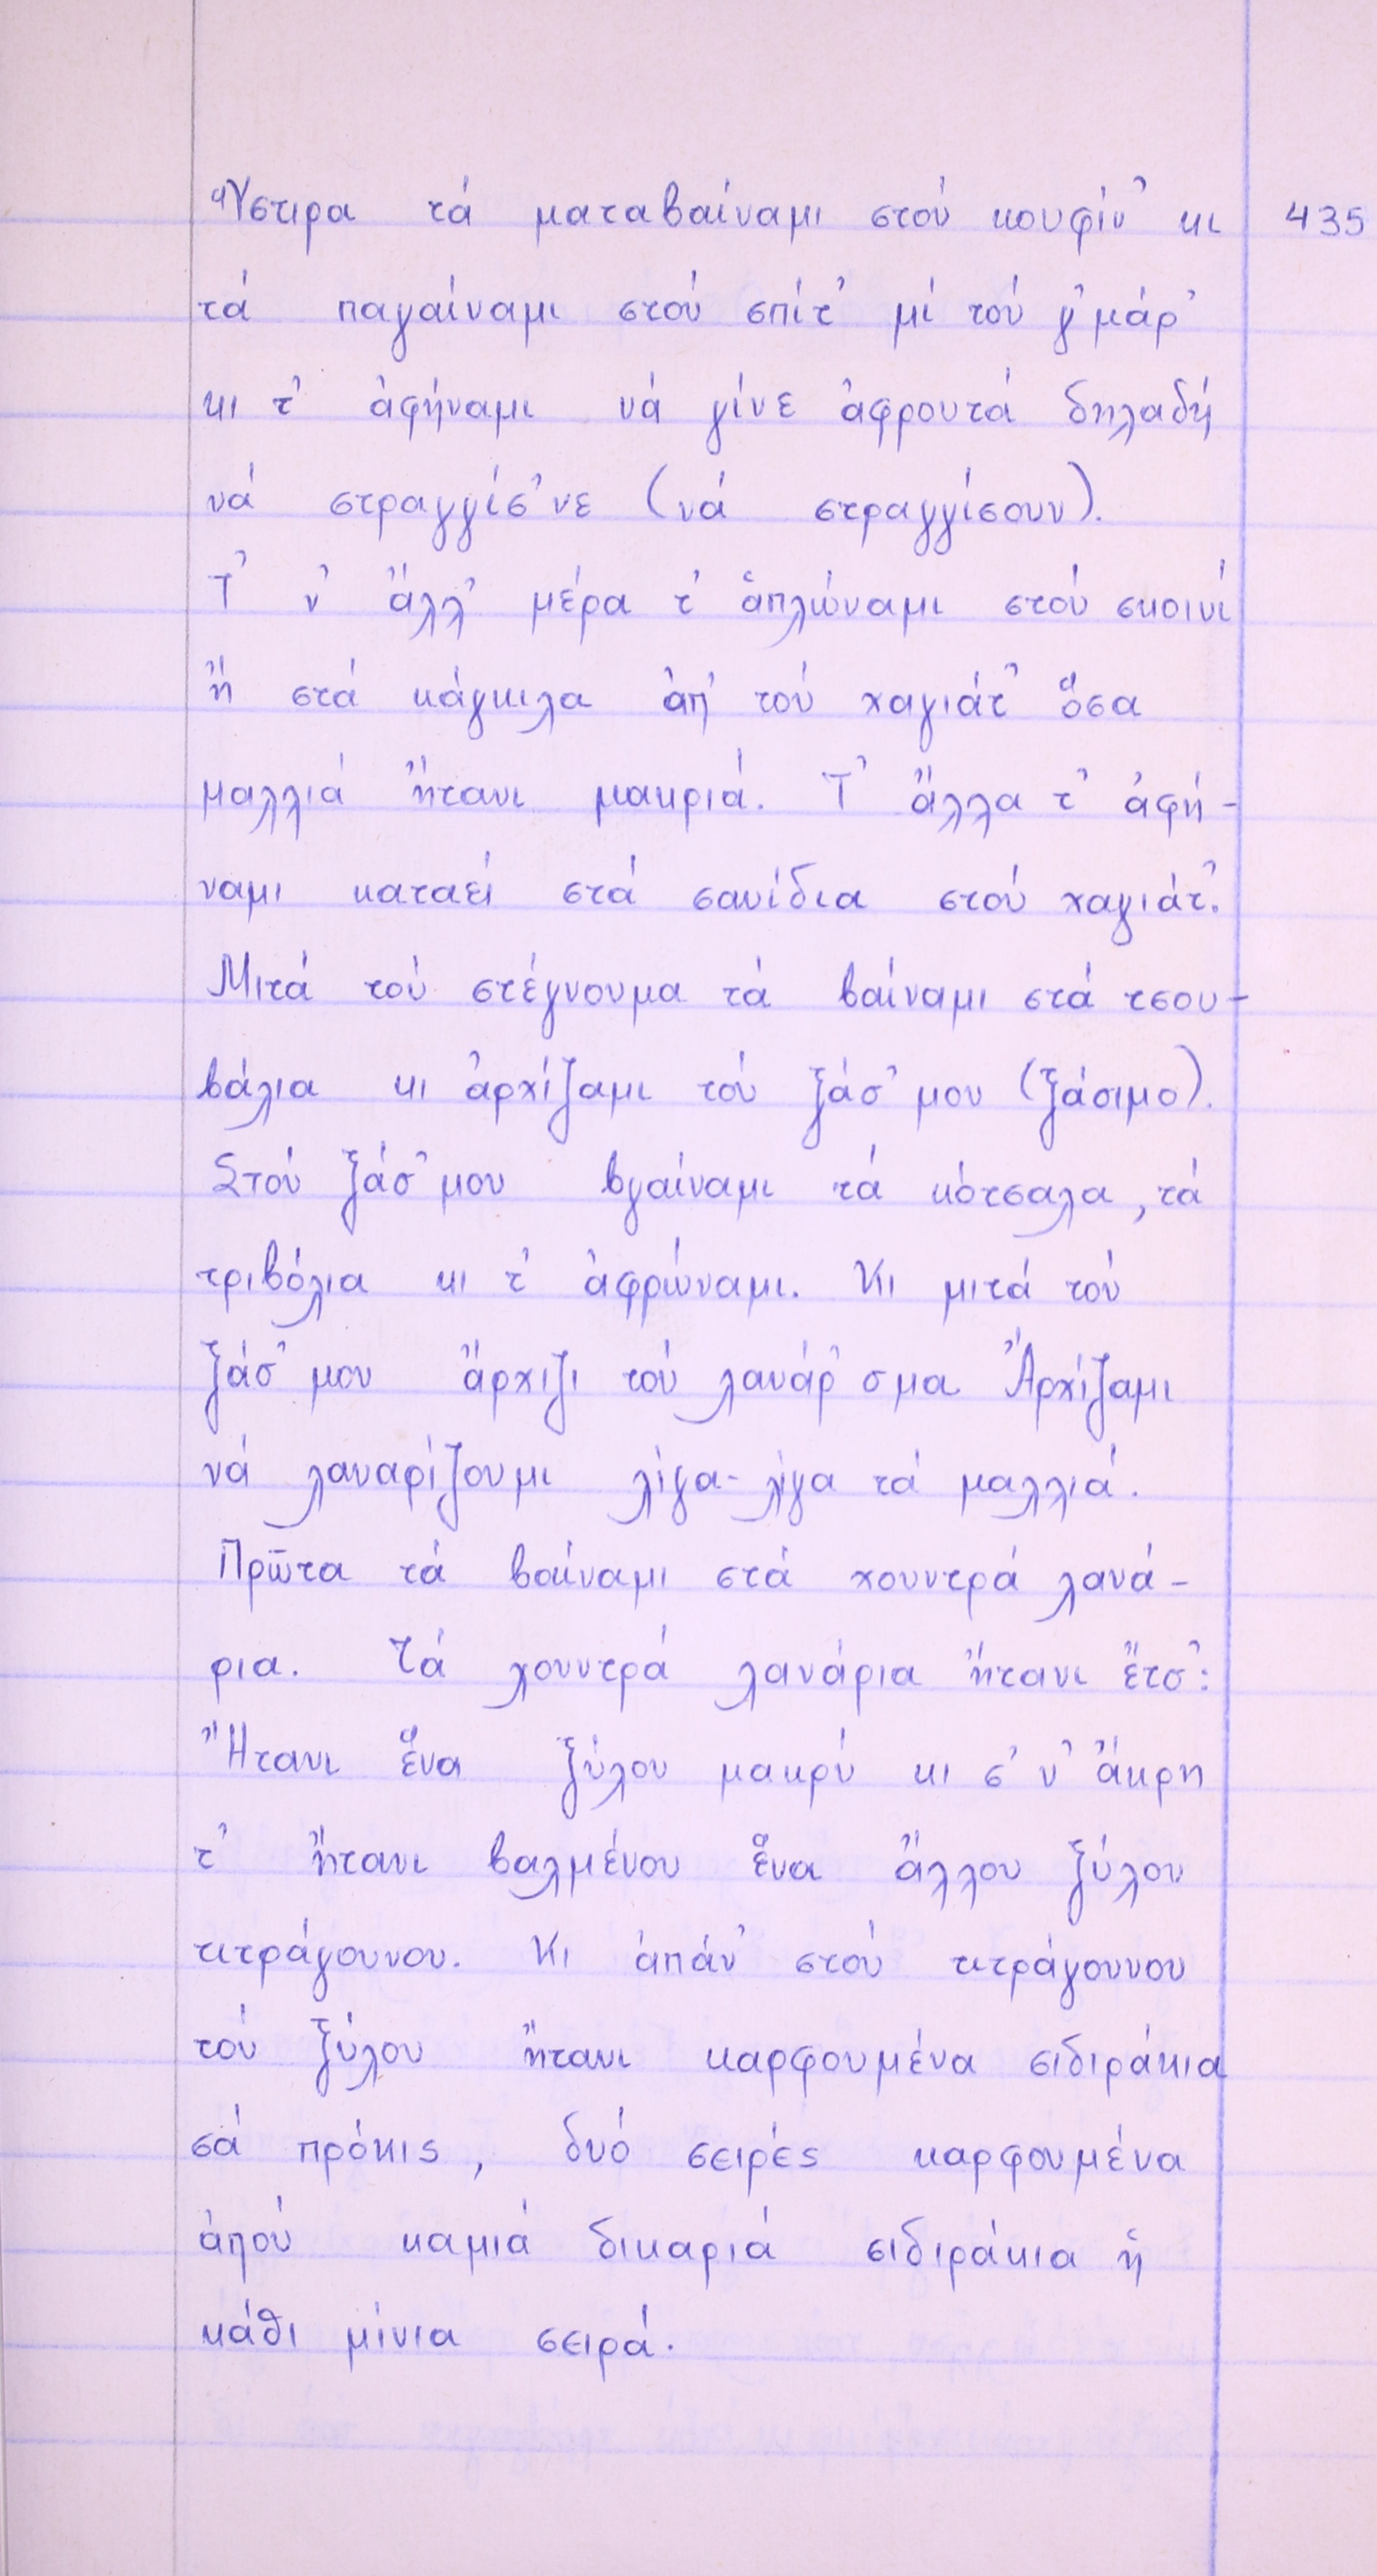 Ὕστιρα τά ματαβαίναμι στού κουφίν' κι 435
τά παγαίναμι στού σπίτ' μί τού γ'μάρ'
κι τ' ἀφήναμι νά γίνε ἀφρουτά δηλαδή
νά στραγγίσ'νε (νά στραγγίσουν).
Τ' ν' ἄλλ' μέρα τ' ἁπλώναμι στού σκοινί
ἤ στά κάγκιλα ἀπ' τού χαγιάτ' ὅσα
μαλλιά ἤτανι μακριά. Τ' ἄλλα τ' ἀφή-
ναμι καταεί στά σανίδια στού χαγιάτ'.
Μιτά τού στέγνουμα τά βαίναμι στά τσου-
βάλια κι ἀρχίζαμι τού ξάσ'μου (ξάσιμο).
Στού ξάσ'μου βγαίναμι τά κότσαλα, τά
τριβόλια κι τ' ἀφρώναμι. Κι μιτά τού
ξάσ'μου ἄρχιζι τού λανάρ'σμα Ἀρχίζαμι
νά λαναρίζουμι λίγα-λίγα τά μαλλιά.
Πρῶτα τά βαίναμι στά χουντρά λανά-
ρια. Τά χουντρά λανάρια ἤτανι ἔτσ':
Ἤτανι ἕνα ξύλου μακρύ κι σ' ν' ἄκρη
τ' ἤτανι βαλμένου ἕνα ἄλλου ξύλου
τιτράγουνου. Κι ἀπάν' στού τιτράγουνου
τού ξύλου ἤτανι καρφουμένα σιδιράκια
σά πρόκις, δυό σειρές καρφουμένα
ἀπού καμιά δικαριά σιδιράκια ἡ
κάθι μίνια σειρά.